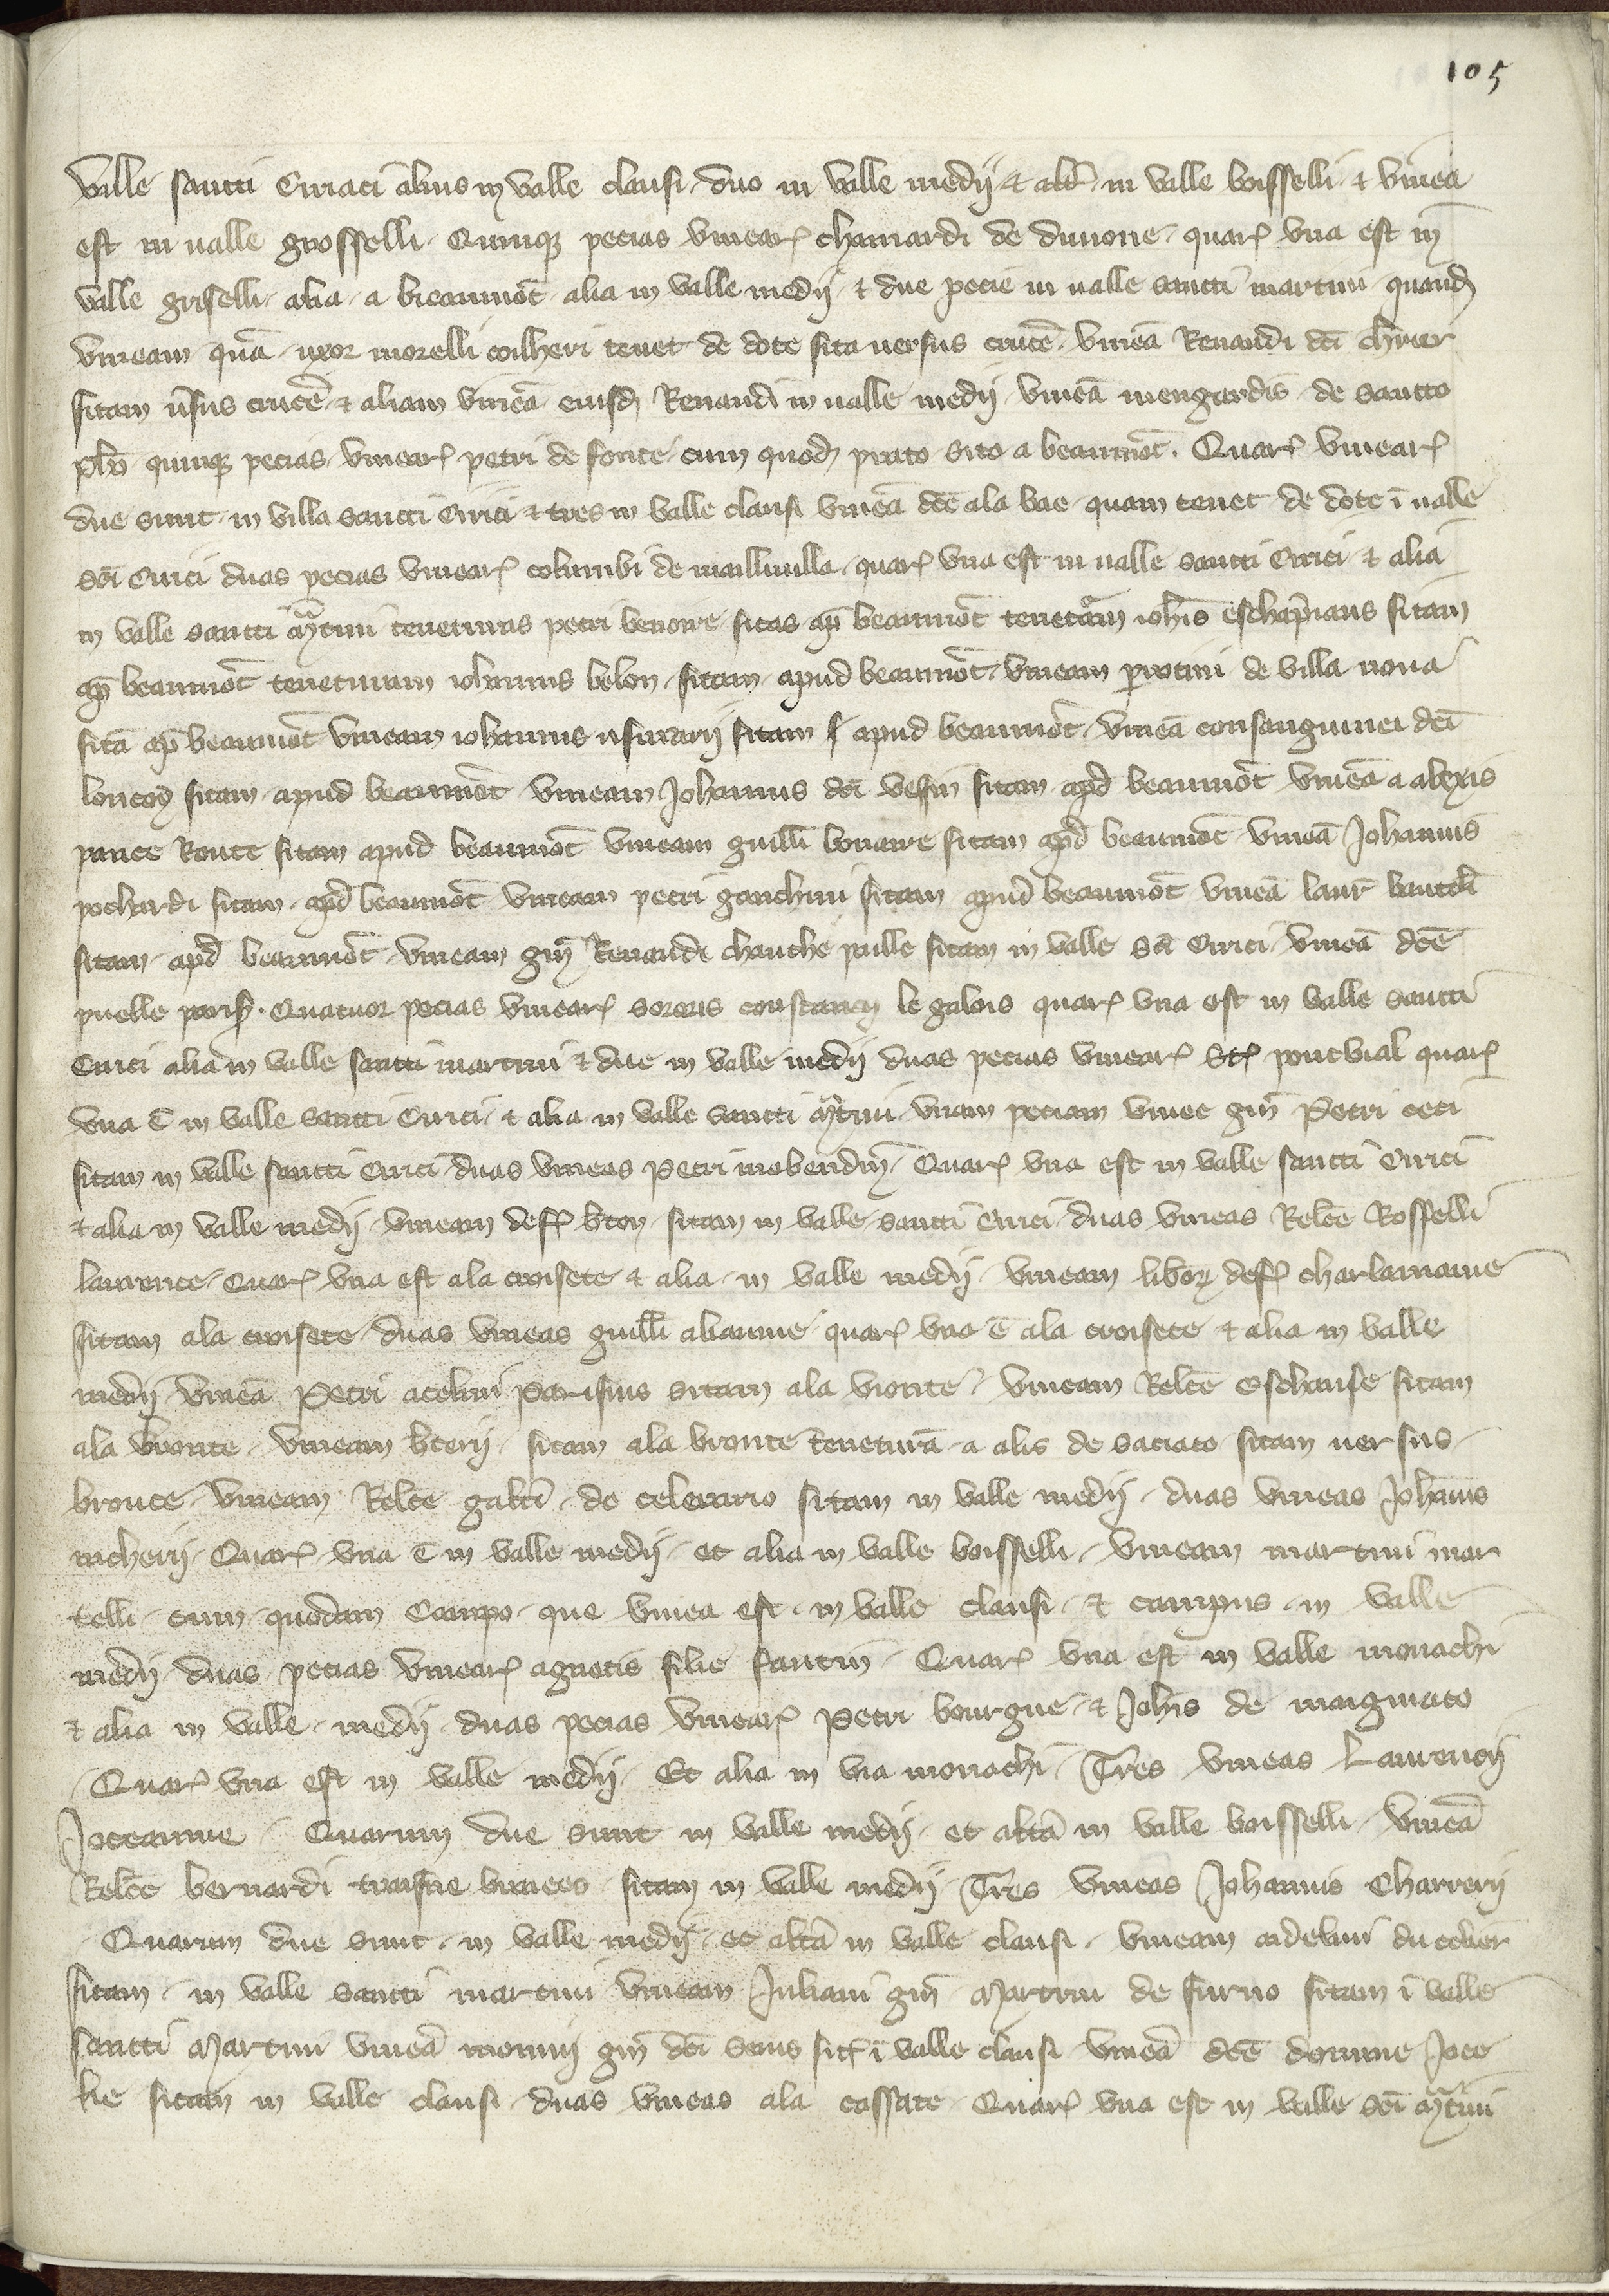 105
Valle sancti Ciriaci alius in valle clausi duo in valle medij & alt̄ in valle boisselli & vinea
est in ualle grosselli Quinque pecias vinear̄ chamardi de diuione quar̄ vna est in
valle griselli alia a bieaumōt alia in valle medij & due pecie in ualle sancti martini quand̄
vineam quā uxor morelli coilheri tenet de dote sita uersus crucē vineā Renaudi dc̄i ch̄rier
sitam ūsus crucē & aliam vineā eiusd̄ Renaudi in ualle medij vineā mengardis de sancto
quinque pecias vinear̄ petri de fonte cum quod̄ prato sito a beaumōt Quar̄ vinear̄
due sunt in villa sancti Cirici & tres in valle clausi vineā dc̄e ala vae quam tenet de dote ī ualle
sc̄i Cirici duas pecias vinear̄ columbi de maillimilla quar̄ vna est in ualle sancti Cirici & alia
in valle sancti m̄tini teneturas petri benoire sitas ap̄ beaumōt tenet̄am ioh̄is sitam
ap̄ beaumōt teneturam iohannis belon sitam apud beaumōt vineam perotini de villa noua
sitā ap̄ beaumōt vineam iohannis usurarij sitam apud beaumōt vineā consanguinei dc̄i
sitam apud beaumōt vineam Johannis dc̄i sitam apd̄ beaumōt vineā a alexis
pance Route sitam apud beaumōt vineam guill̄i bonaire sitam apd̄ beaumōt vineā Johannis
pochardi sitam apd̄ beaumōt vineam petri gauchini sitam apud beaumōt vineā laur̄
sitam apd̄ beaumōt vineam Renaudi chauche pulle sitam in valle sc̄i Cirici vineā dc̄e
puelle paris̄ Quatuor pecias vinear̄ sororis le galois quar̄ vna est in valle sancti
Cirici alia in valle sancti martini & due in valle medij duas pecias vinear̄ quar̄
vna ē in valle sancti Cirici & alia in valle sancti m̄tini vnam peciam vinee gm̄ Petri ceci
sitam in valle sancti Cirici duas vineas Petri Quar̄ vna est in valle sancti Cirici
& alia in valle medij vineam def̄ sitam in valle sancti Cirici duas vineas Relc̄e Rosselli
laurence Quar̄ vna est ala croisete & alia in valle medij vineam libor̄ def̄ charlamaine
sitam ala croisete duas vineas guill̄i alianme quar̄ vna ē ala croisete & alia in valle
medij vineā Petri acelini Parisius sitam ala vronce vineam Relc̄e eschause sitam
ala vronce vineam sitam ala bronce teneturā a alis de saciato sitam uersus
bronce vineam Relc̄e galt̄i de celerario sitam in valle medij duas vineas Joh̄anis
richerij Quar̄ vna ē in valle medij et alia in valle boisselli vineam martini mar
telli cum quodam Campo que vinea est in valle clausi & campus in valle
medij duas pecias vinear̄ agnetis filie fantin̄ Quar̄ vna est in valle monachi
& alia in valle medij duas pecias vinear̄ Petri bourgne & Joh̄is de maigniaco
Quar̄ vna est in valle medij Et alia in via monachi Tres vineas Laurencij
Joceaume Quarum due sunt in valle medij et alt̄a in valle boisselli vineā
Relc̄e bernardi sitam in valle medij Tres vineas Johannis Charrerij
Quarum due sunt in valle medij et alt̄a in valle clausi vineam
sitam in valle sancti martini vineam Juliani gm̄ Martini de furno sitam ī valle
sancti Martini vineā gm̄ dc̄i sit̄ ī valle clausi vineā dc̄e domine Joce
lie sitam in valle clausi duas vineas ala cossate Quar̄ vna est in valle sc̄i m̄tini